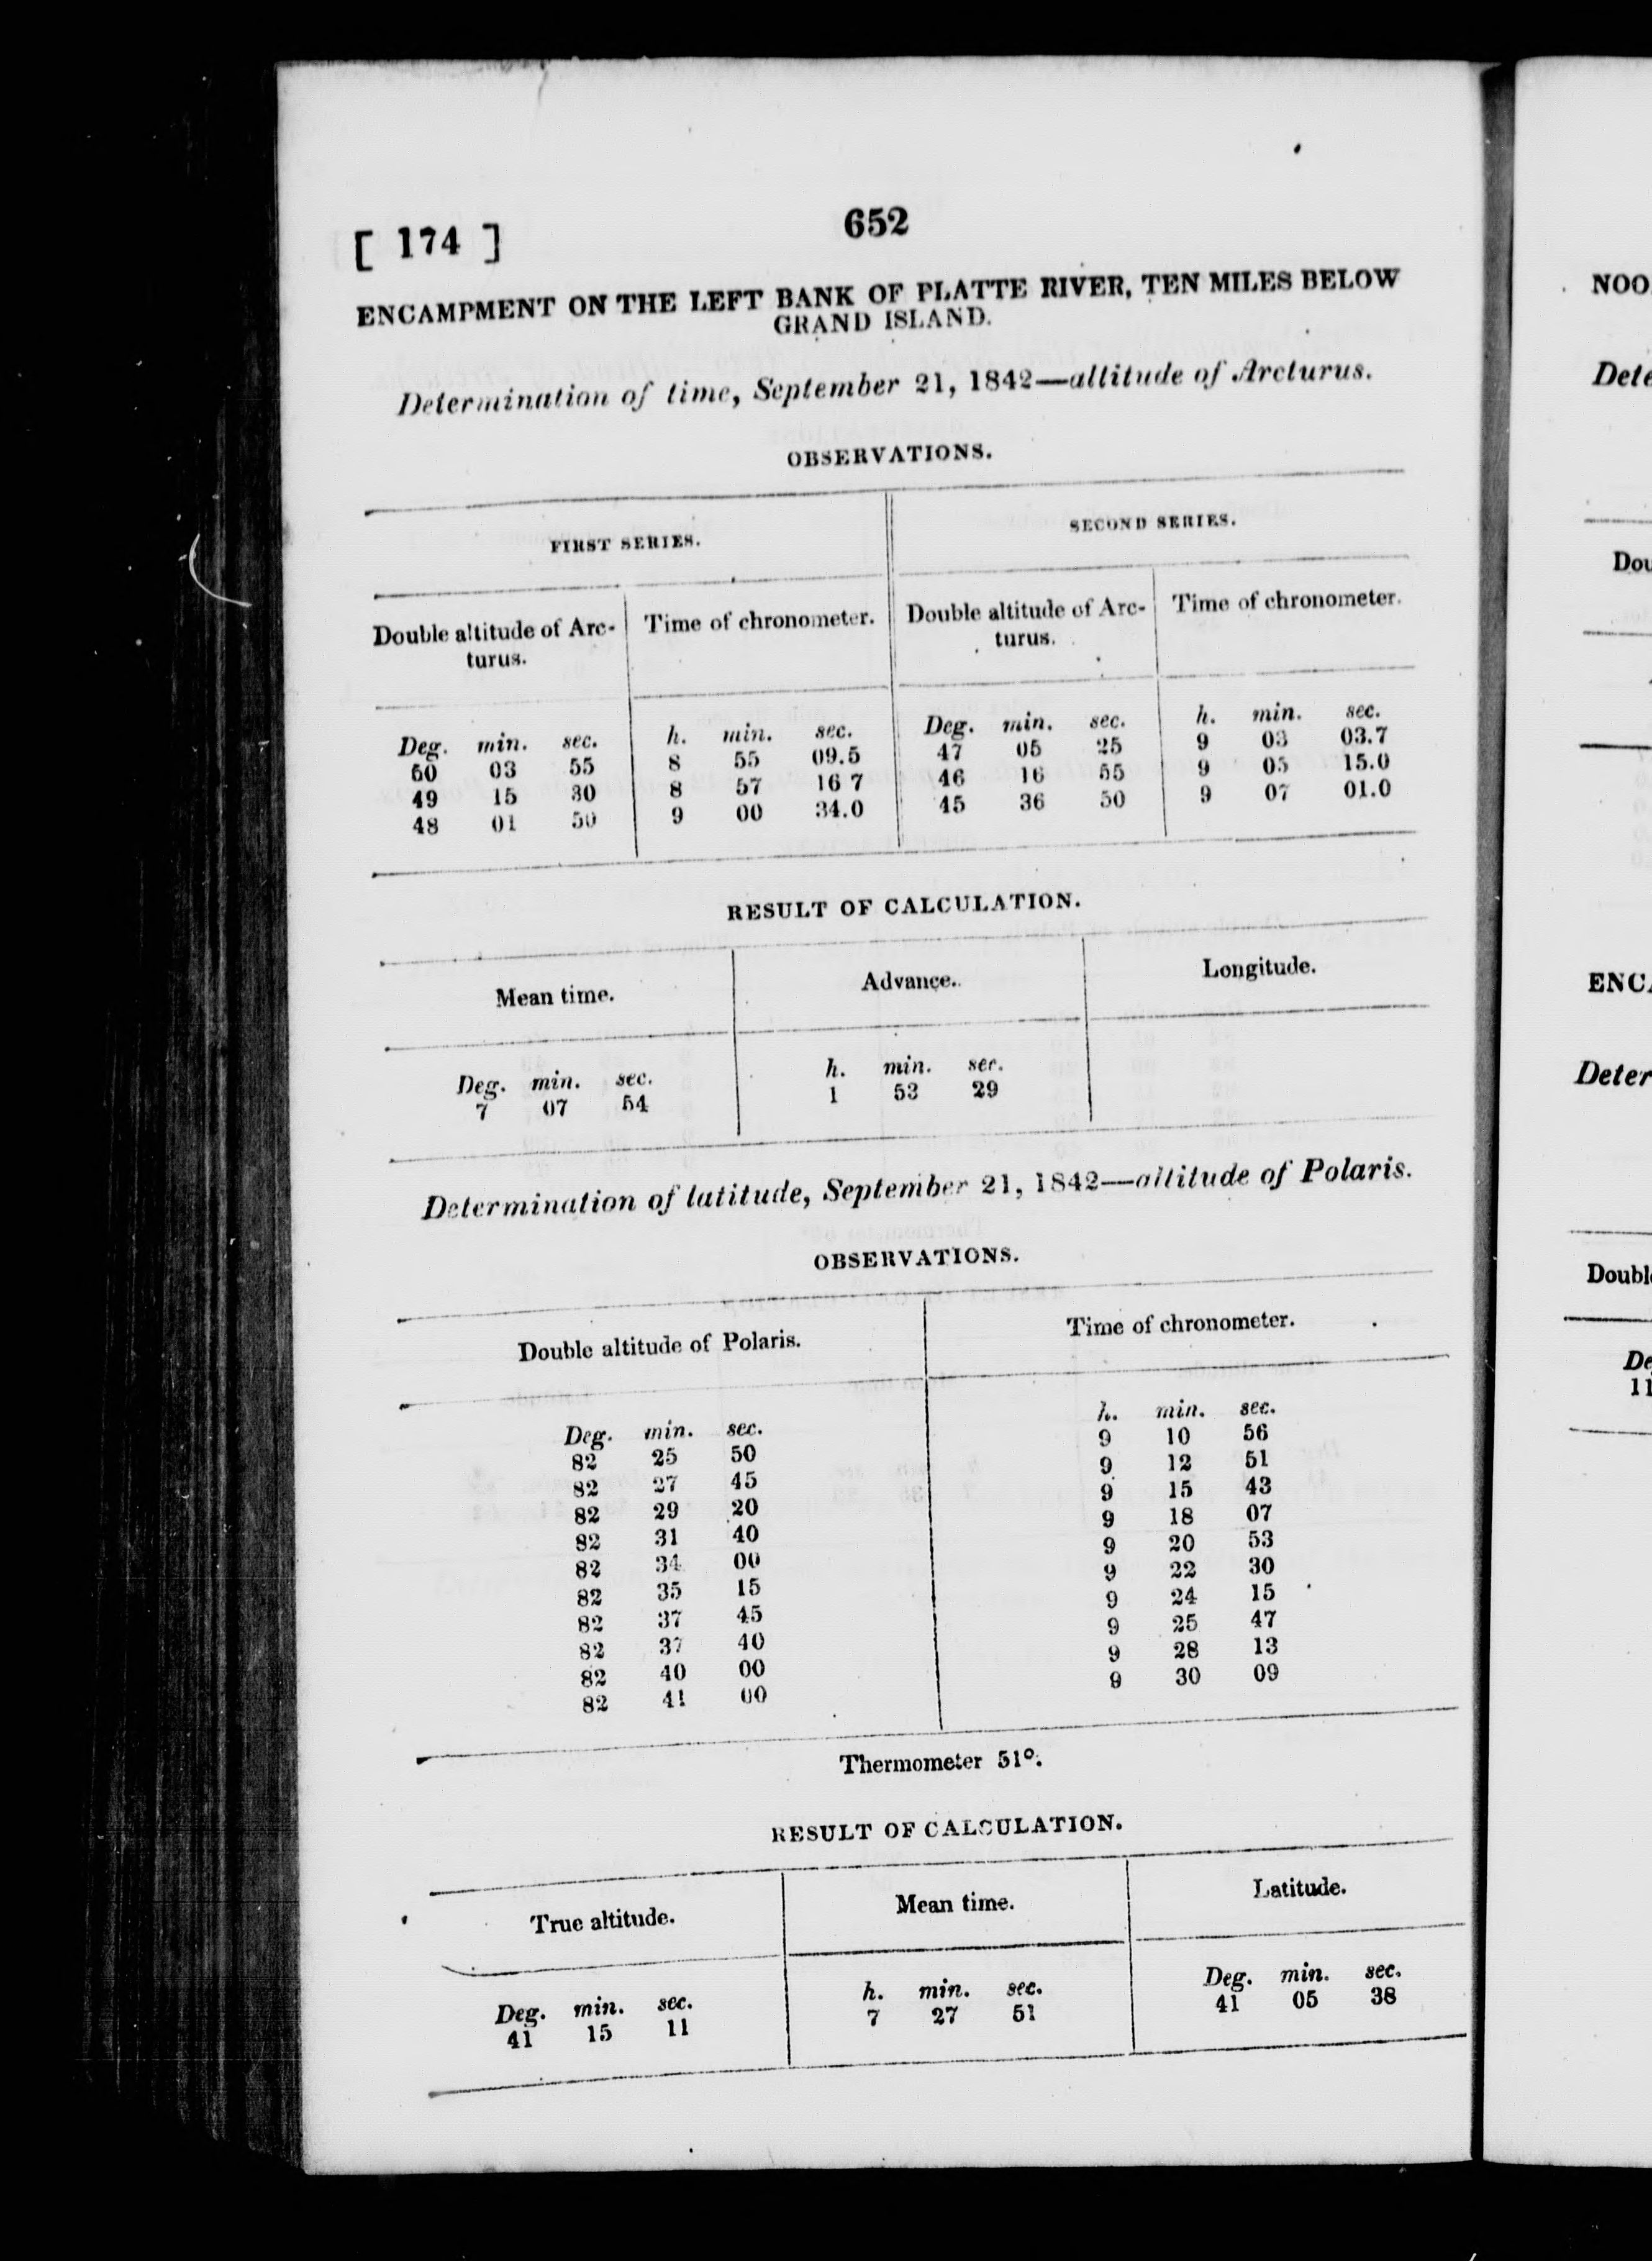 [ 174 ]
652
ENCAMPMENT ON THE LEFT BANK OF PLATTE RIVER, TEN MILES BELOW
GRAND ISLAND.
Determination of time, September 21, 1842—altitude of Arcturus.
OBSERVATIONS.
FIRST SERIES. SECOND SERIES.
Double altitude of Arc- Time of chronometer. Double altitude of Arc- Time of chronometer.
turus. turus.
Deg. min. sec. h. min. sec. Deg. min. sec. h. min. sec.
50 03 55 8 55 09.5 47 05 25 9 03 03.7
49 15 30 8 57 16 7 46 16 55 9 05 15.0
48 01 50 9 00 34.0 45 36 50 9 07 01.0
RESULT OF CALCULATION.
Mean time. Advance. Longitude.
Deg. min. sec. h. min. sec.
7 07 54 1 53 29
Determination of latitude, September 21, 1842—altitude of Polaris.
OBSERVATIONS.
Double altitude of Polaris. Time of chronometer.
Deg. min. sec. h. min. sec.
82 25 50 9 10 56
82 27 45 9 12 51
82 29 20 9 15 43
82 31 40 9 18 07
82 34 00 9 20 53
82 35 15 9 22 30
82 37 45 9 24 15
82 37 40 9 25 47
82 40 00 9 28 13
82 41 00 9 30 09
Thermometer 51°.
RESULT OF CALCULATION.
True altitude. Mean time. Latitude.
Deg. min. sec. h. min. sec. Deg. min. sec.
41 15 11 7 27 51 41 05 38
NOO
Dete
Dou
ENC
Deter
Doubl
De
11